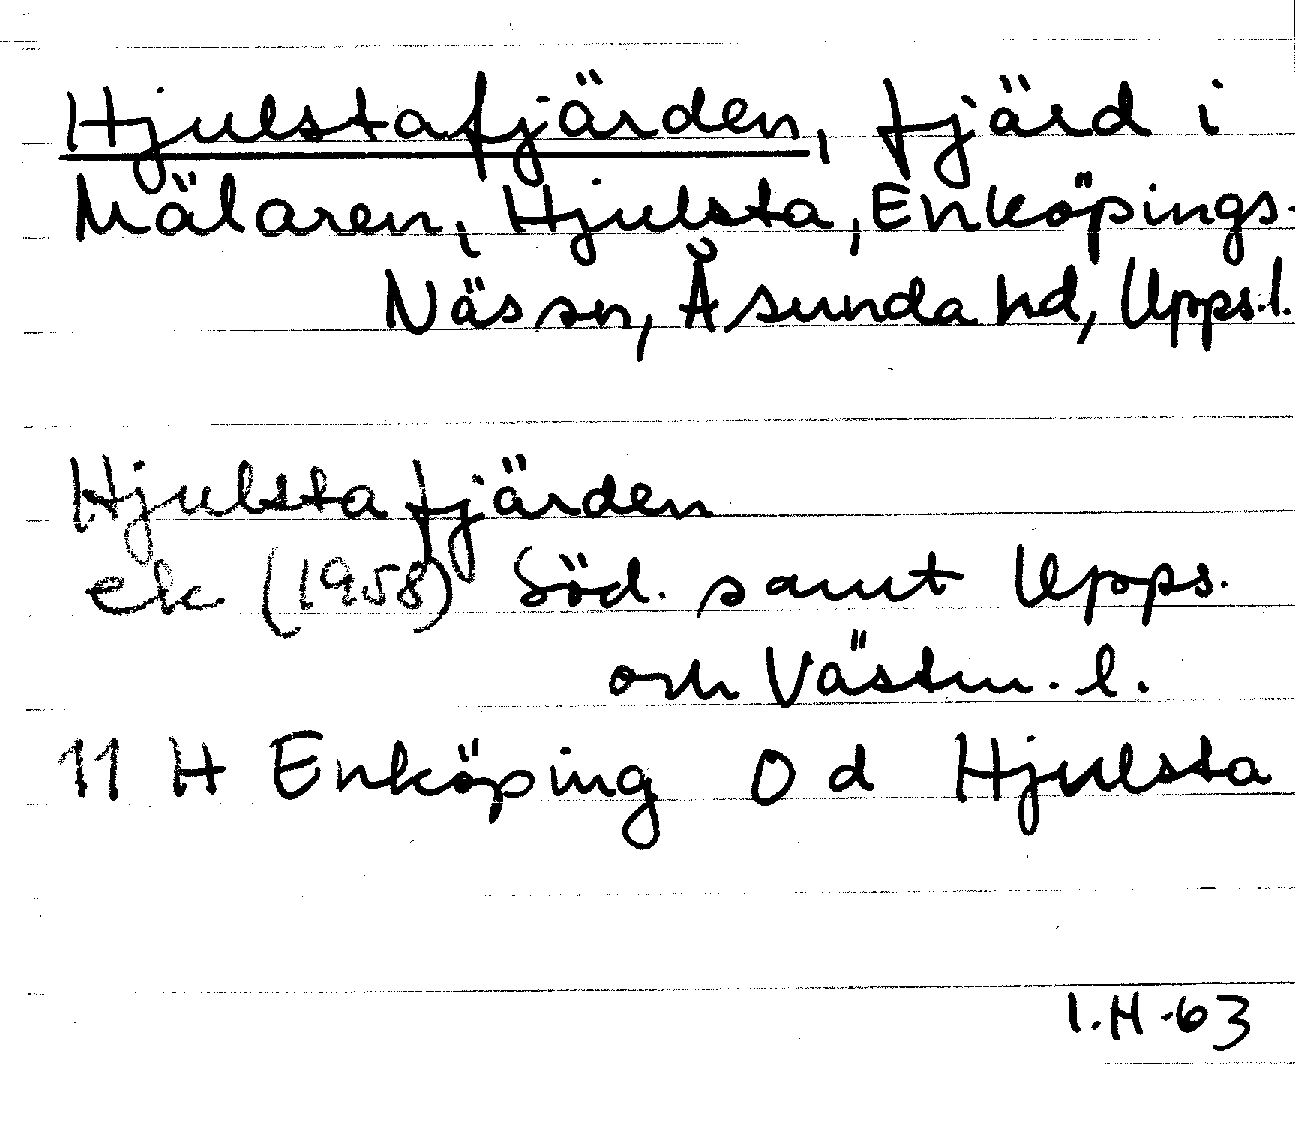 Hjulstafjärden, fjärd i
Mälaren, Hjulsta, Enköpings-
Näs sn, Åsunda hd, Upps.l.
Hjulstafjärden
ek (1958) Söd. samt Upps.
och Västm. l.
11 H Enköping 0 d Hjulsta
I.H-63